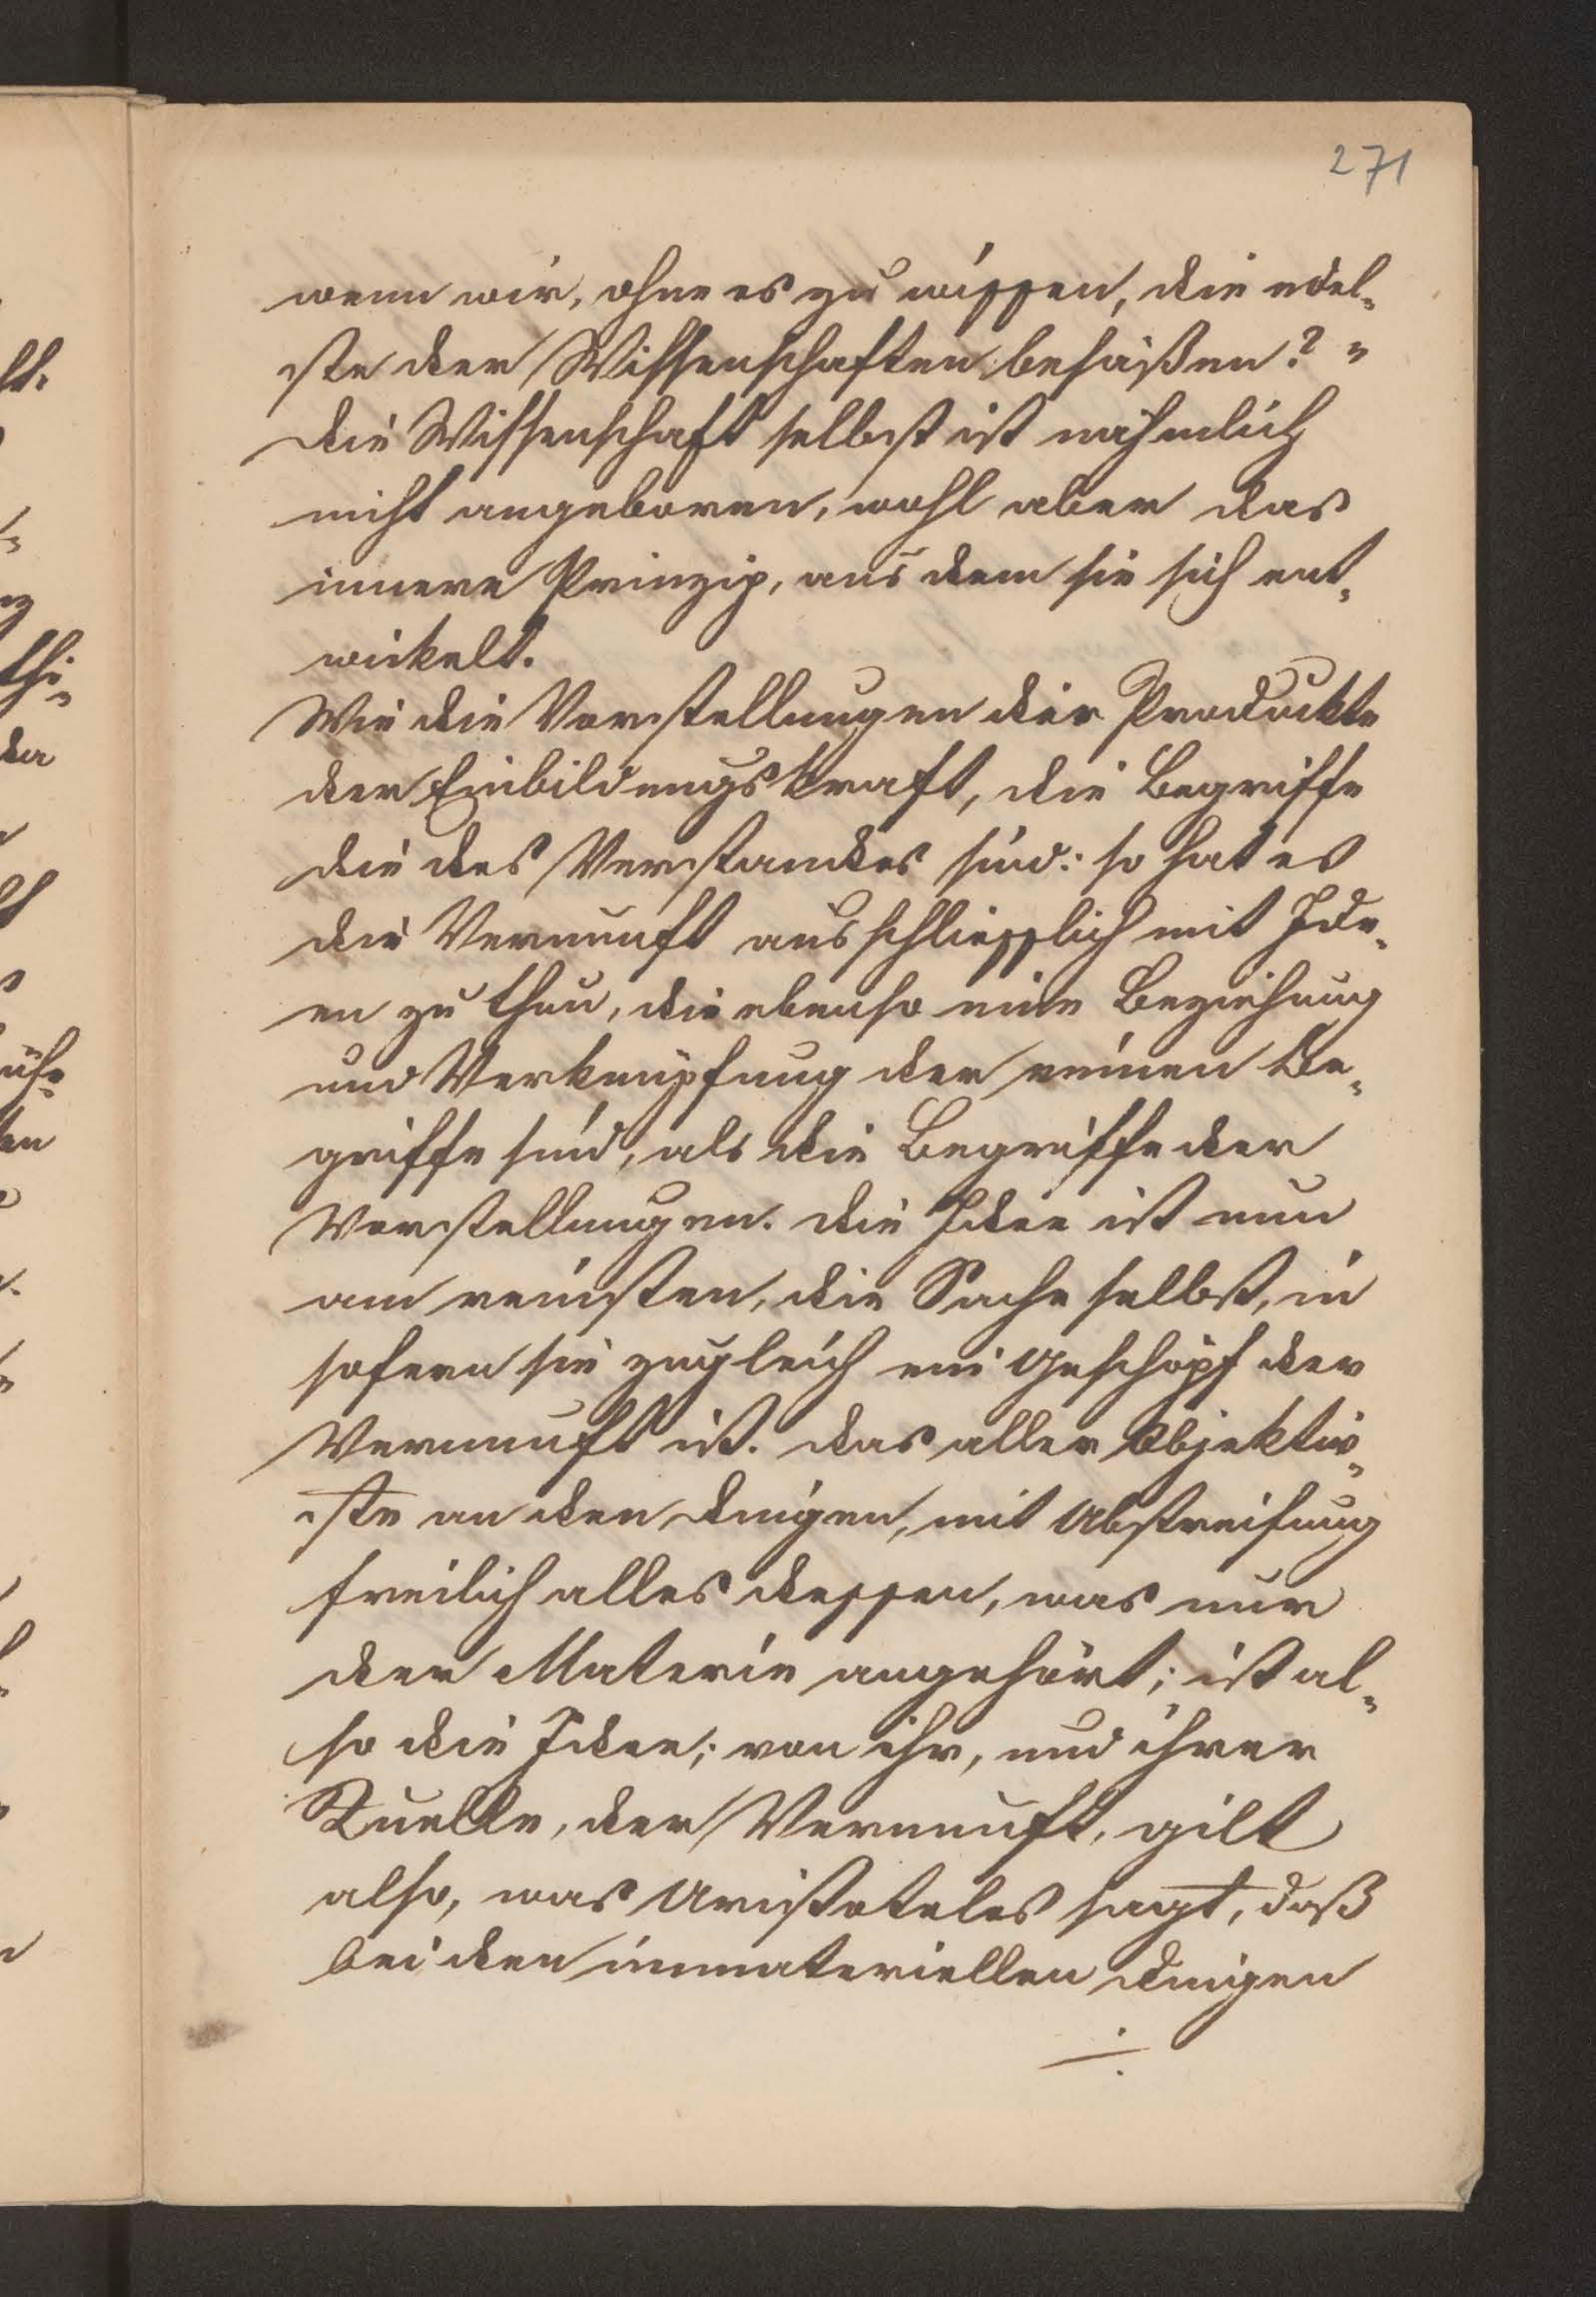 271
wenn wir, ohne es zu wissen, die edel-
ste der Wissenschaften besäßen?"
die Wissenschaft selbst ist nähmlich
nicht angeboren, wohl aber das
innere Prinzip, aus dem sie sich ent-
wickelt.
Wie die Vorstellungen die Produckte
der Einbildungskraft, die Begriffe
die des Verstandes sind: so hat es
die Vernunft ausschliesslich mit Ide-
en zu thun, die ebenso eine Beziehung
und Verknüpfung der reinen Be-
griffe sind, als die Begriffe der
Vorstellungen. die Idee ist nun
am reinsten, die Sache selbst, in
sofern sie zugleich ein Geschöpf der
Vernunft ist. das aller Objektiv-
ste an den Dingen, mit Abstreifung
freilich alles dessen, was nur
der Materie angehört; ist al-
so die Idee; von ihr, und ihrer
Quelle, der Vernunft, gilt
also, was Aristoteles sagt, daß
bei den immateriellen Dingen
./.